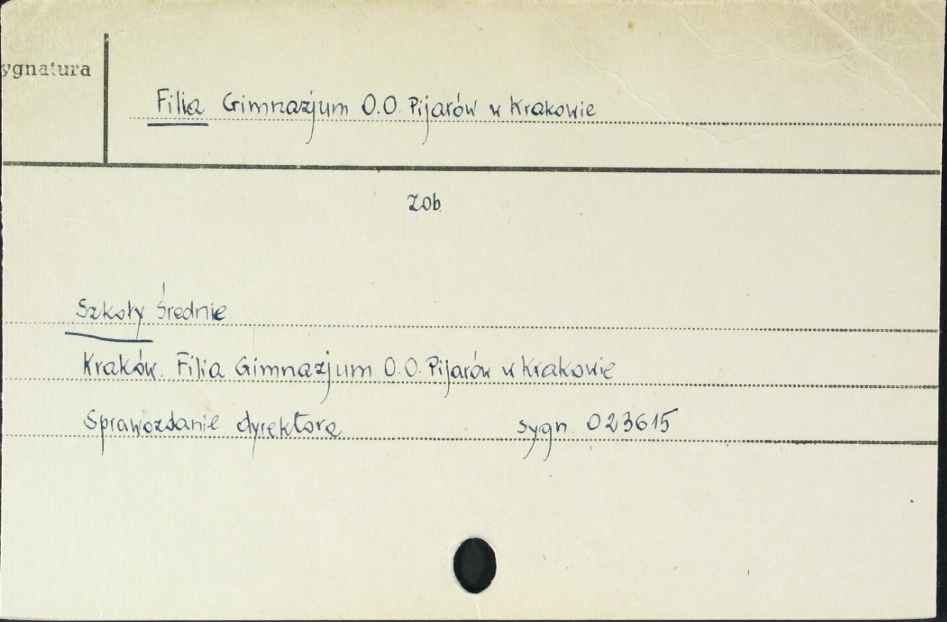 ygnatura
Filia Gimnazjum O.O. Pijarów w Krakowie
zob.
Szkoły średnie
Kraków. Filia Gimnazjum O.O. Pijarów w Krakowie
Sprawozdanie dyrektora sygn 023615